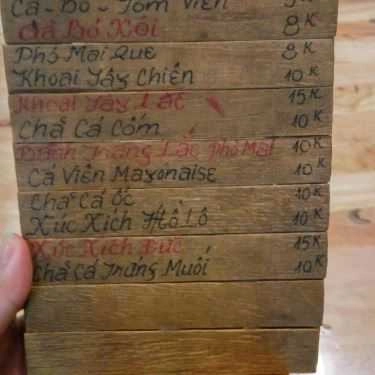 Cá - Bò - Tôm Viên 5K
Cá Bó Xôi 8K
Phô Mai Que 8K
Khoai Tây Chiên 10K
Khoai Tây Lắc 15K
Chả Cá Cốm 10K
Bánh Tráng Lắc Phô Mai 10K
Cá Viên Mayonaise 10K
Chả Cá Ốc 10K
Xúc Xích Hồ Lô 10K
Xúc Xích Đức 15K
Chả Cá Trứng Muối 10K